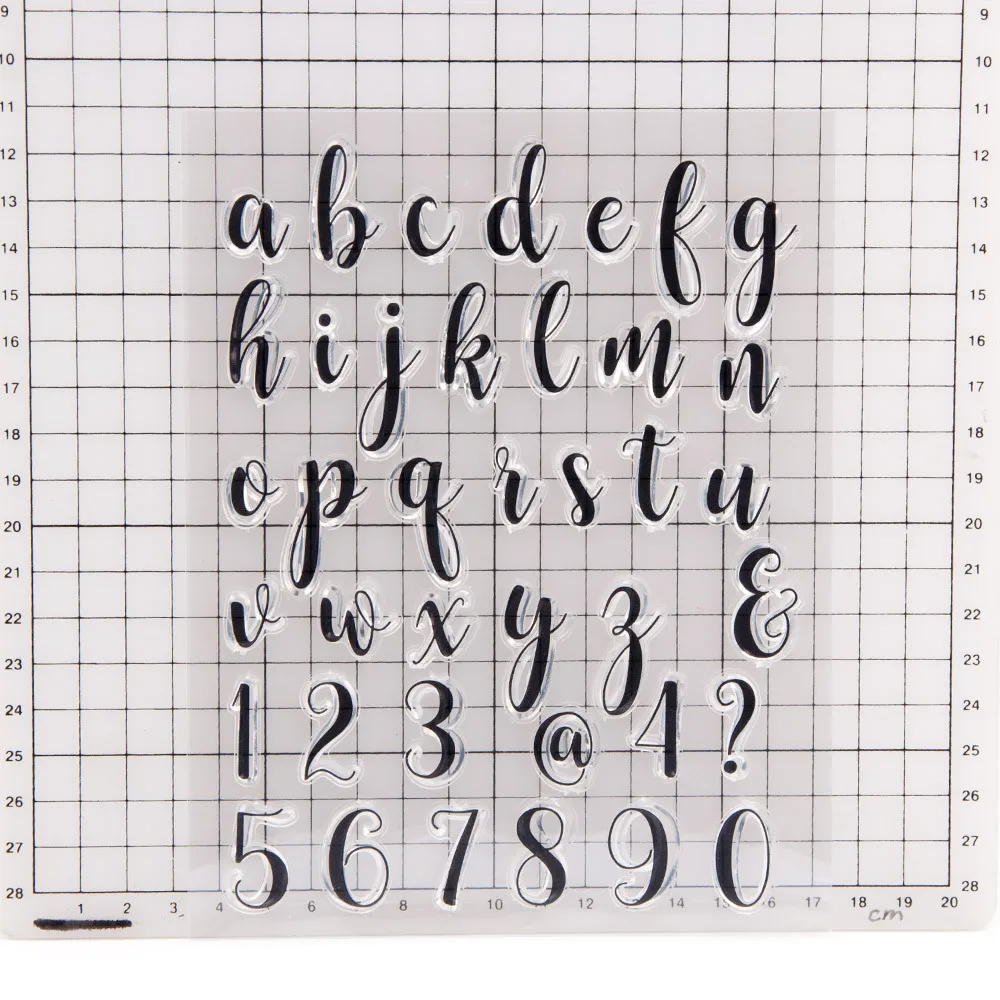 9 9
10 10
11 11
12 12
a b c d e f g
13 13
14 14
15 15
h i j k l m n
16 16
17 17
18 18
o p q r s t u
19 19
20 20
21 21
v w x y z &
22 22
23 23
1 2 3 @ 4 ?
24 24
25 25
26 26
5 6 7 8 9 0
27 27
28 28
1 2 3 4 6 8 10 12 14 16 17 18 19 20
cm